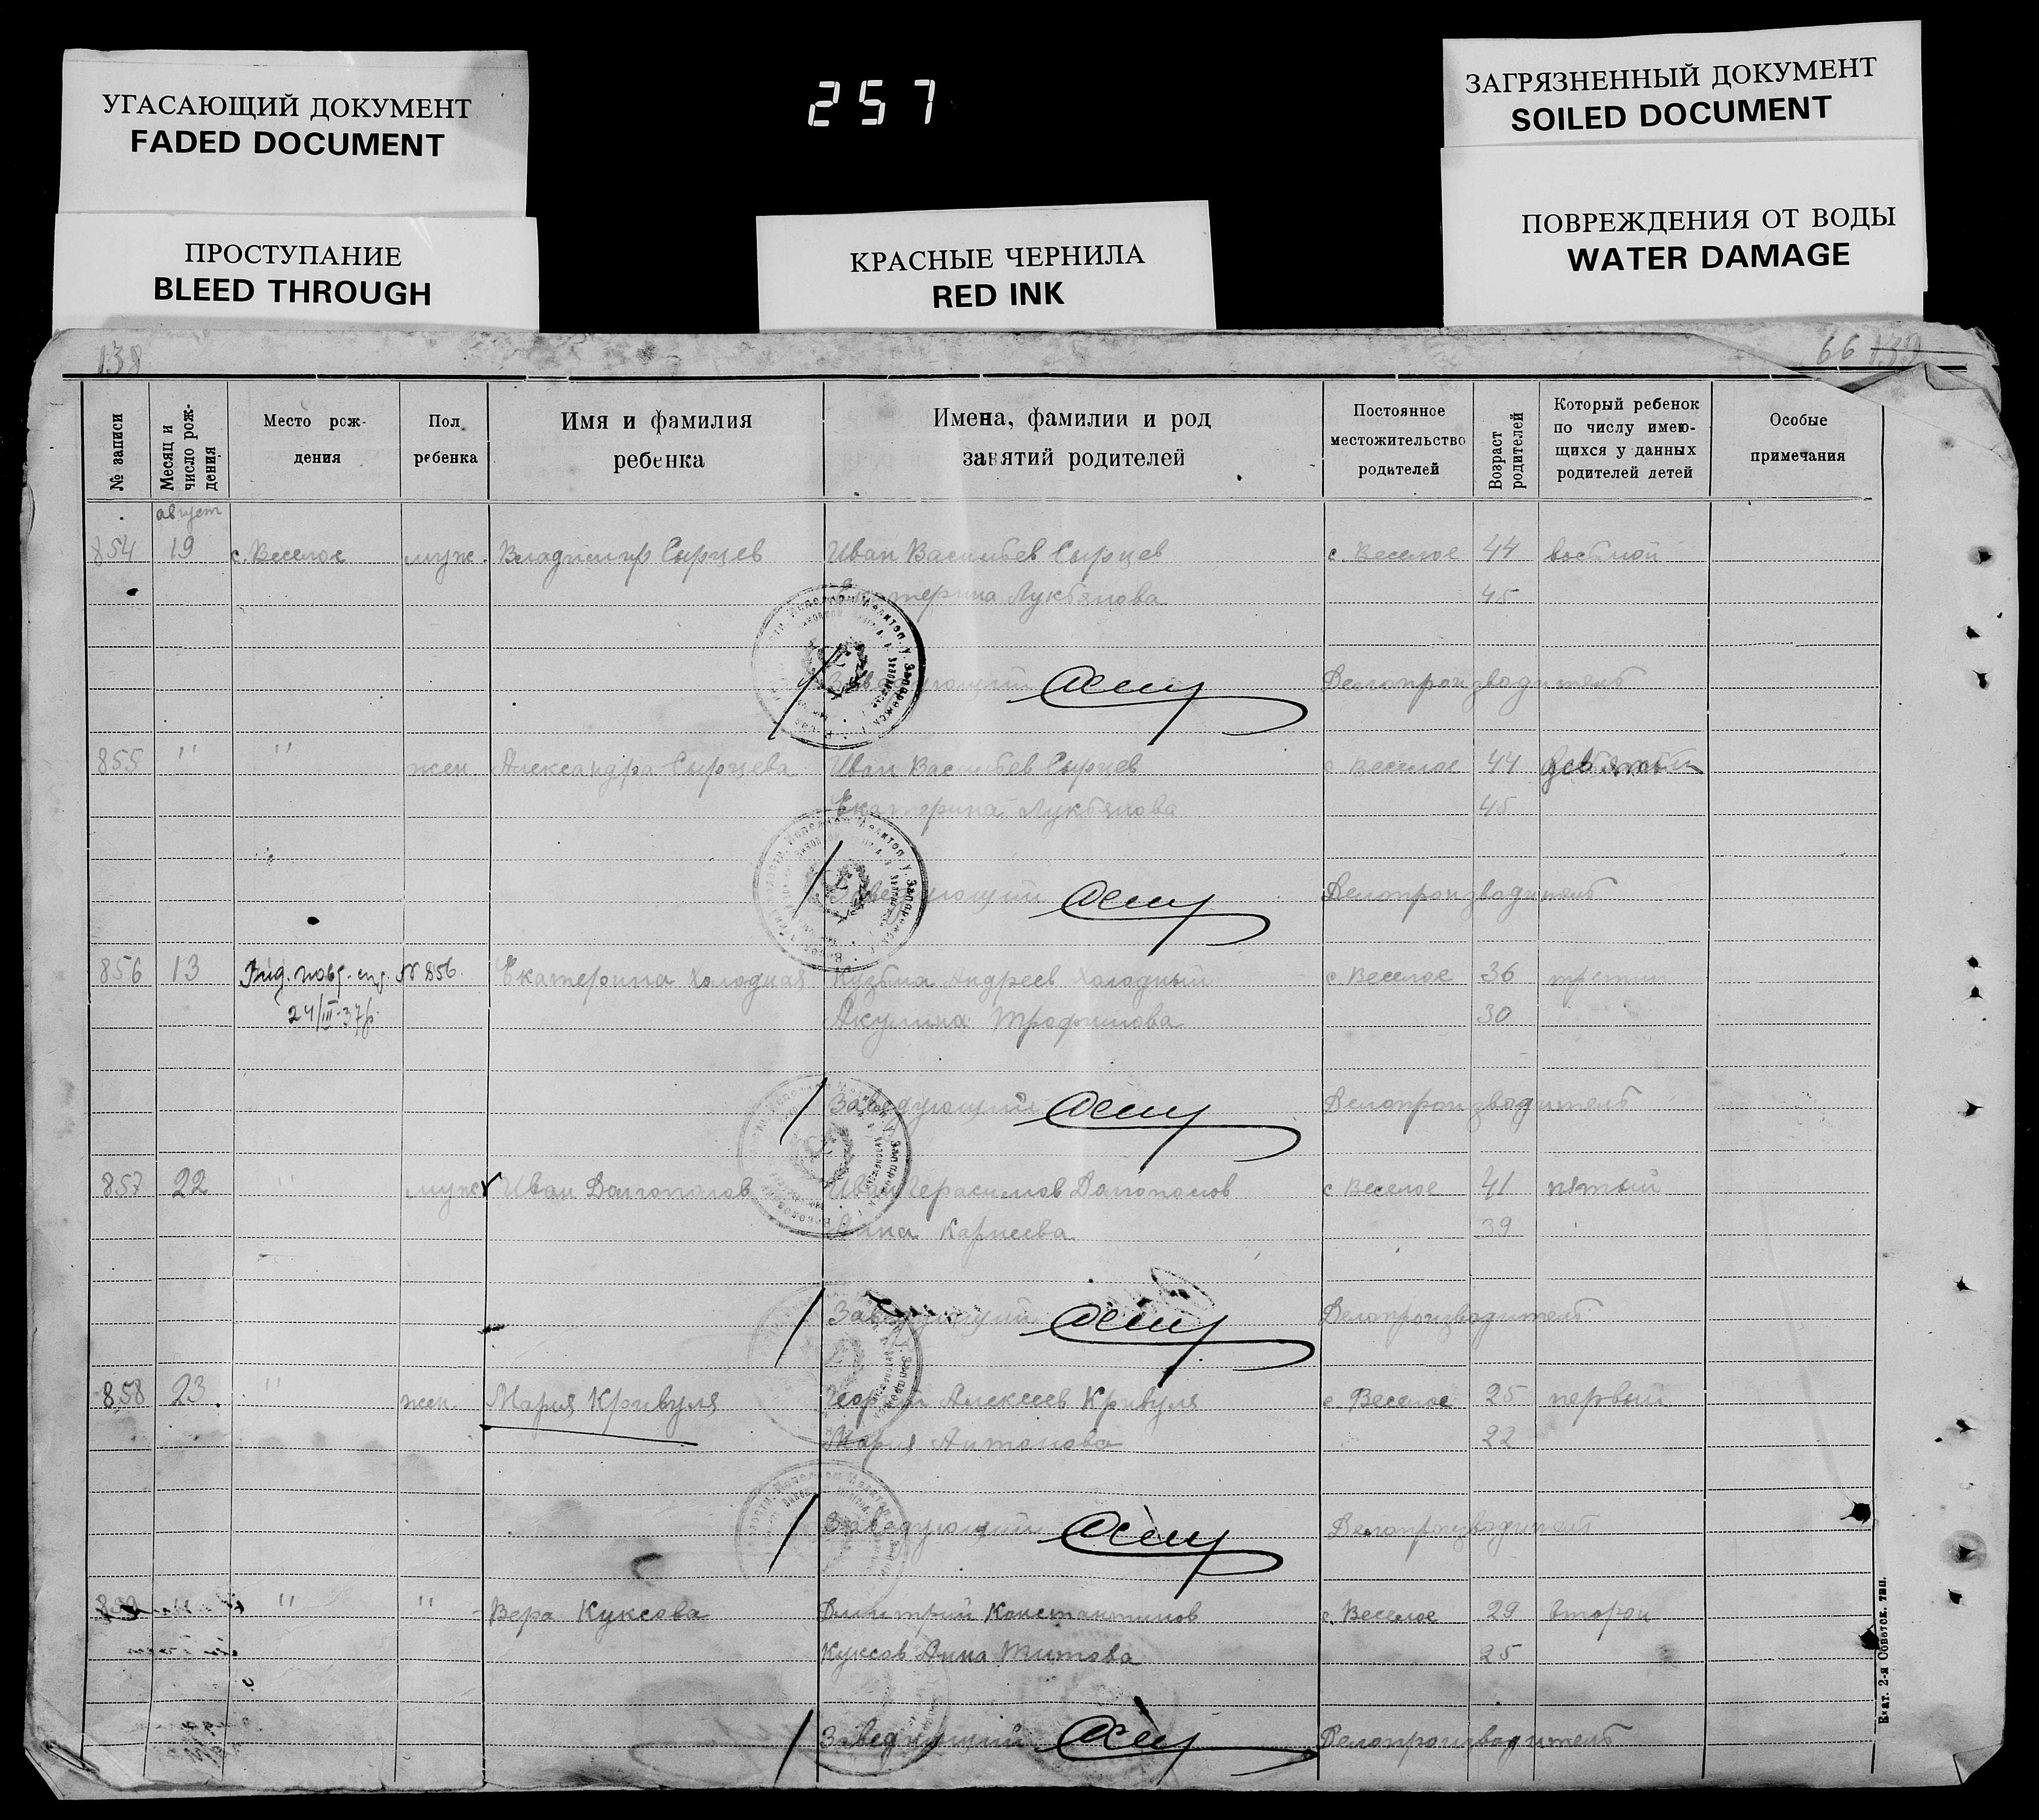 УГАСАЮЩИЙ ДОКУМЕНТ
FADED DOCUMENT
ПРОСТУПАНИЕ
BLEED THROUGH
257
КРАСНЫЕ ЧЕРНИЛА
RED INK
ЗАГРЯЗНЕННЫЙ ДОКУМЕНТ
SOILED DOCUMENT
ПОВРЕЖДЕНИЯ ОТ ВОДЫ
WATER DAMAGE
138
66 139
№ записи
Месяц и число рож-дения
Место рож-
дения
Пол
ребенка
Имя и фамилия
ребенка
Имена, фамилии и род
занятий родителей
Постоянное
местожительство
родителей
Возраст родителей
Который ребенок
по числу имею-
щихся у данных
родителей детей
Особые
примечания
август
854 19 с. Веселое муж. Владимир Сырцев Иван Васильев Сырцев с. Веселое 44 восьмой
Екатерина Лукьянова 45
Заведующий Делопроизводитель
855 " " жен. Александра Сырцева Иван Васильев Сырцев с. Веселое 44 девятый
Екатерина Лукьянова 45
Заведующий Делопроизводитель
856 13 № 856. Екатерина Холодная Кузьма Андреев Холодный с. Веселое 36 третий
24/III-37р. Акулина Трофимова 30
Заведующий Делопроизводитель
857 22 " муж Иван Долгополов Иван Герасимов Долгополов с Веселое 41 пятый
Анна Карнеева 39
Заведующий Делопроизводитель
858 23 " жен. Мария Кривуля Георгий Алексеев Кривуля с. Веселое 25 первый
Мария Антонова 22
Заведующий Делопроизводитель
859 " " Вера Куксова Димитрий Константинов с. Веселое 29 второй
Куксов Анна Титова 25
Заведующий Делопроизводитель
Екат. 2-я Советск. тип.